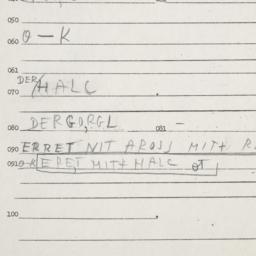 050
060 O — K
061
DER
070 HALC
080 DERGO,RGL 081 —
090 ERRET NIT AROSS MITH R
0910-R ERET MITH HALC OT
100